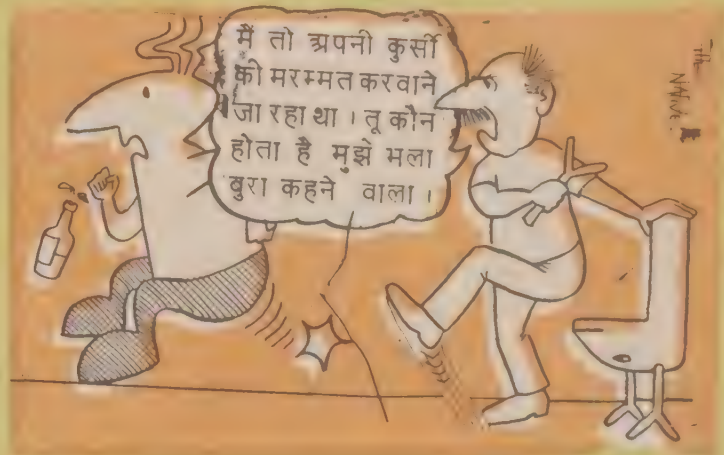 मैं तो अपनी कुर्सी
की मरम्मत करवाने
जा रहा था । तू कौन
होता है मुझे भला
बुरा कहने वाला ।
The